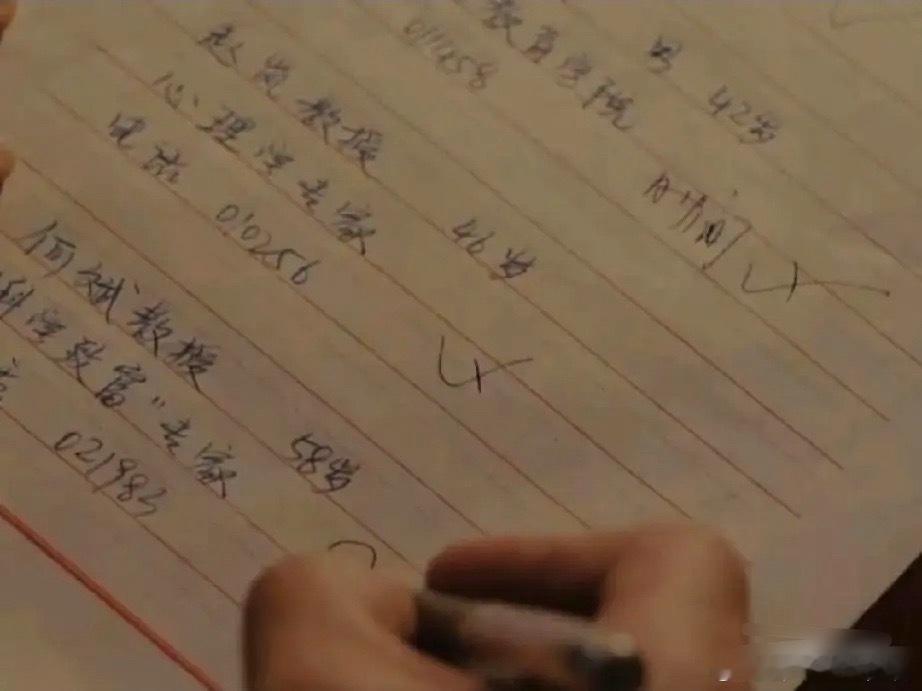 男 42岁
教育学院
011458
时间
教授
46岁
心理学专家
电话 010256
何斌教授
58岁
科学致富"专家
021983